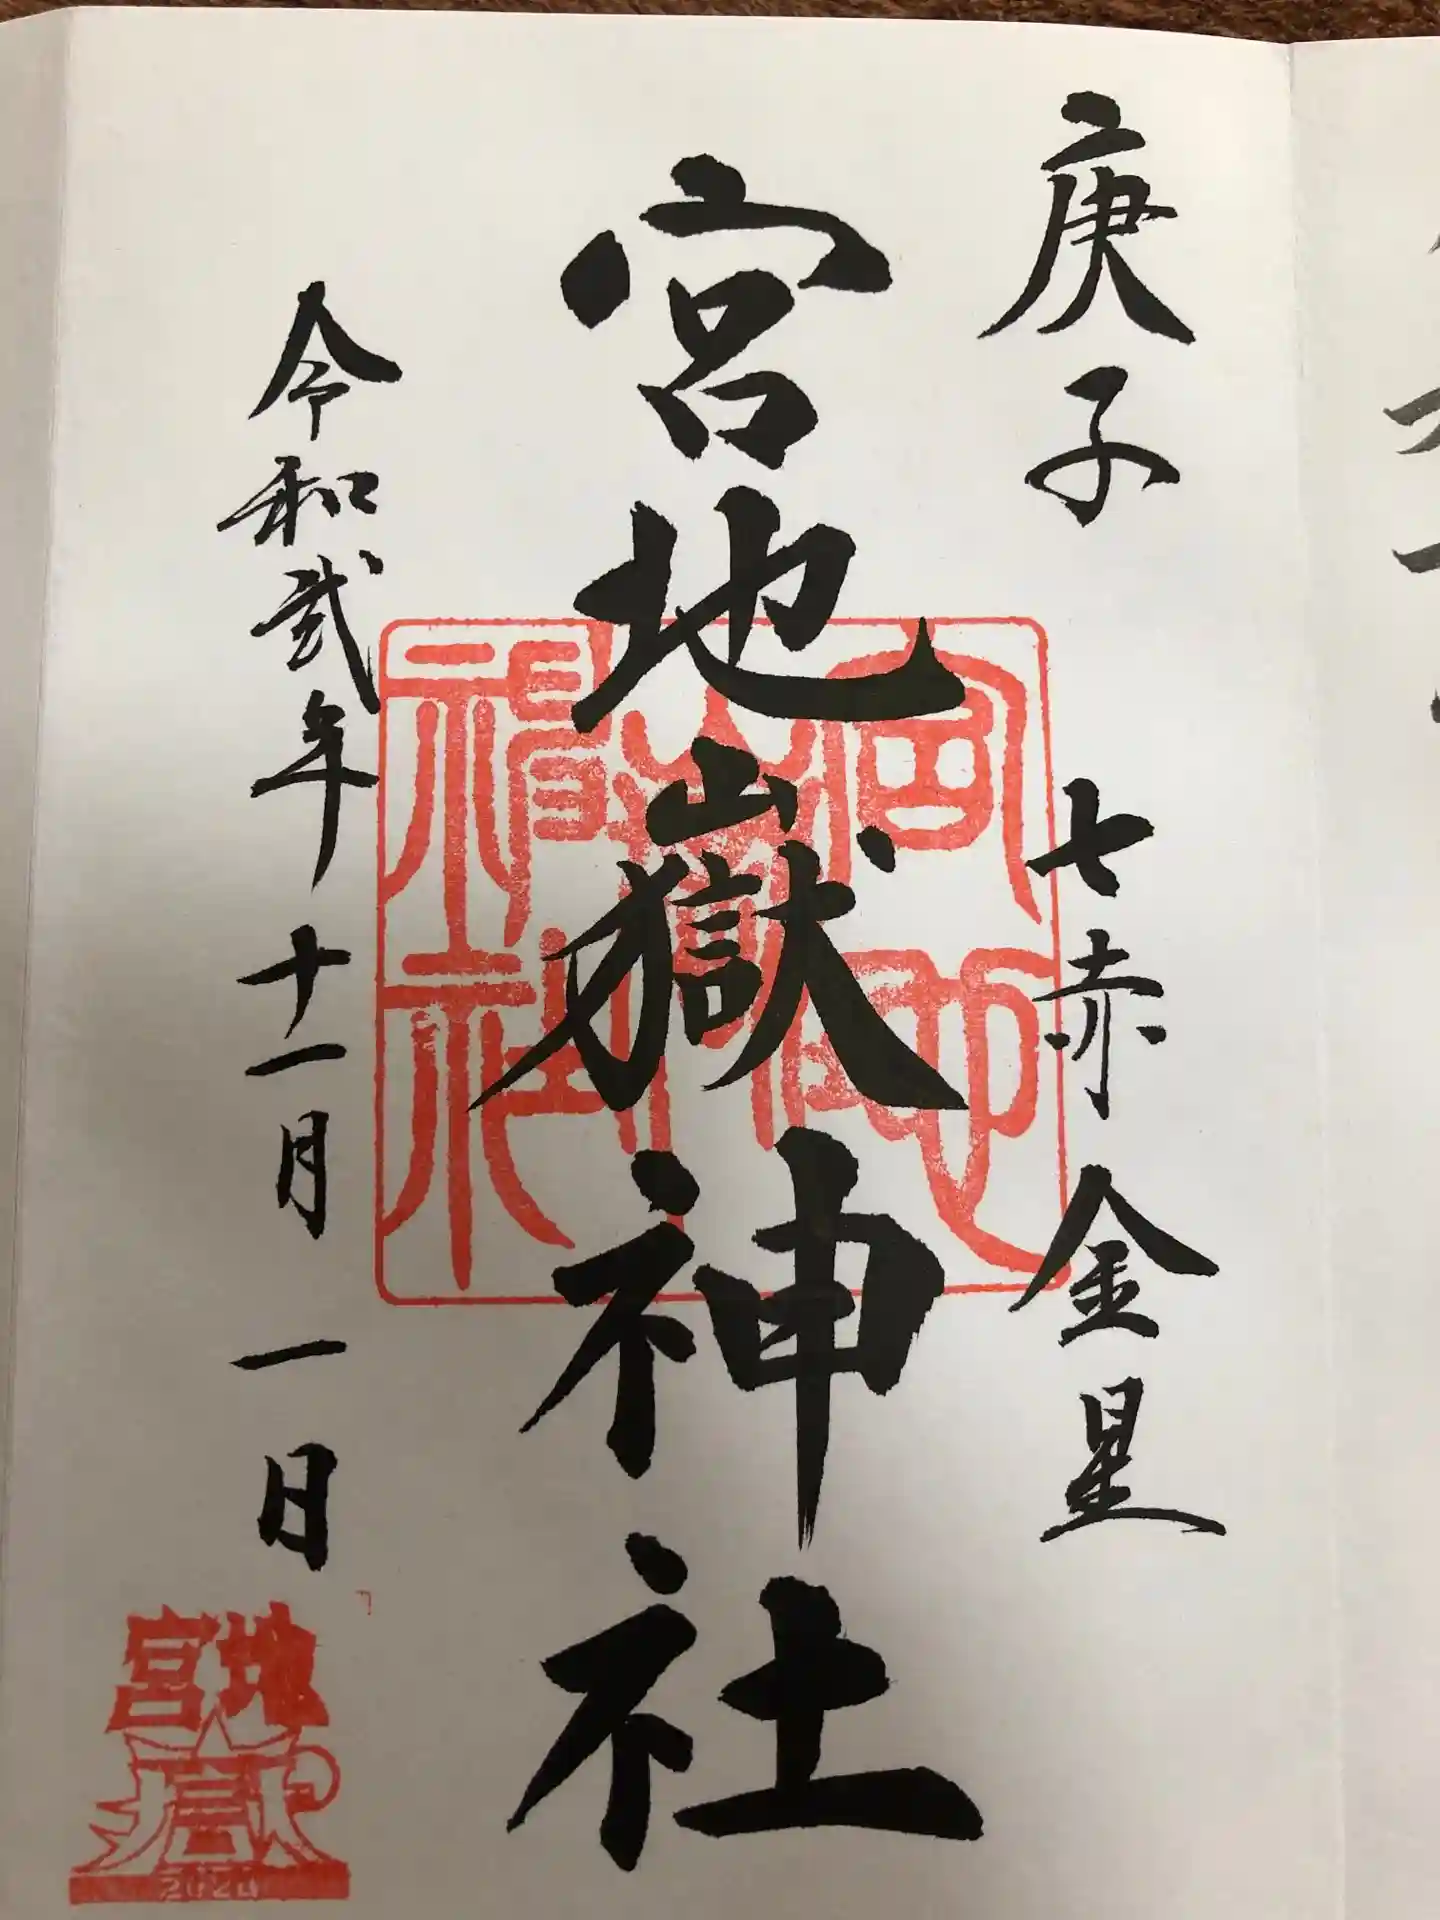 庚子 七赤金星
宮地嶽神社
令和貳年十一月一日
宮地嶽神社
宮地
嶽
2020